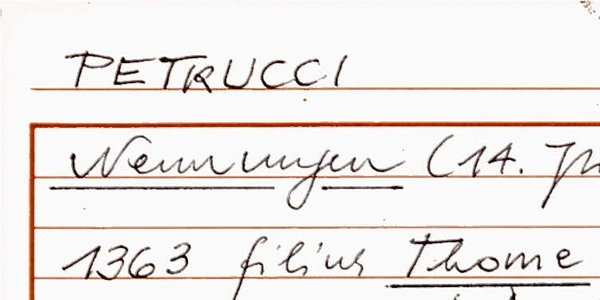 PETRUCCI
Nennungen (14. Jh
1363 filius Thome